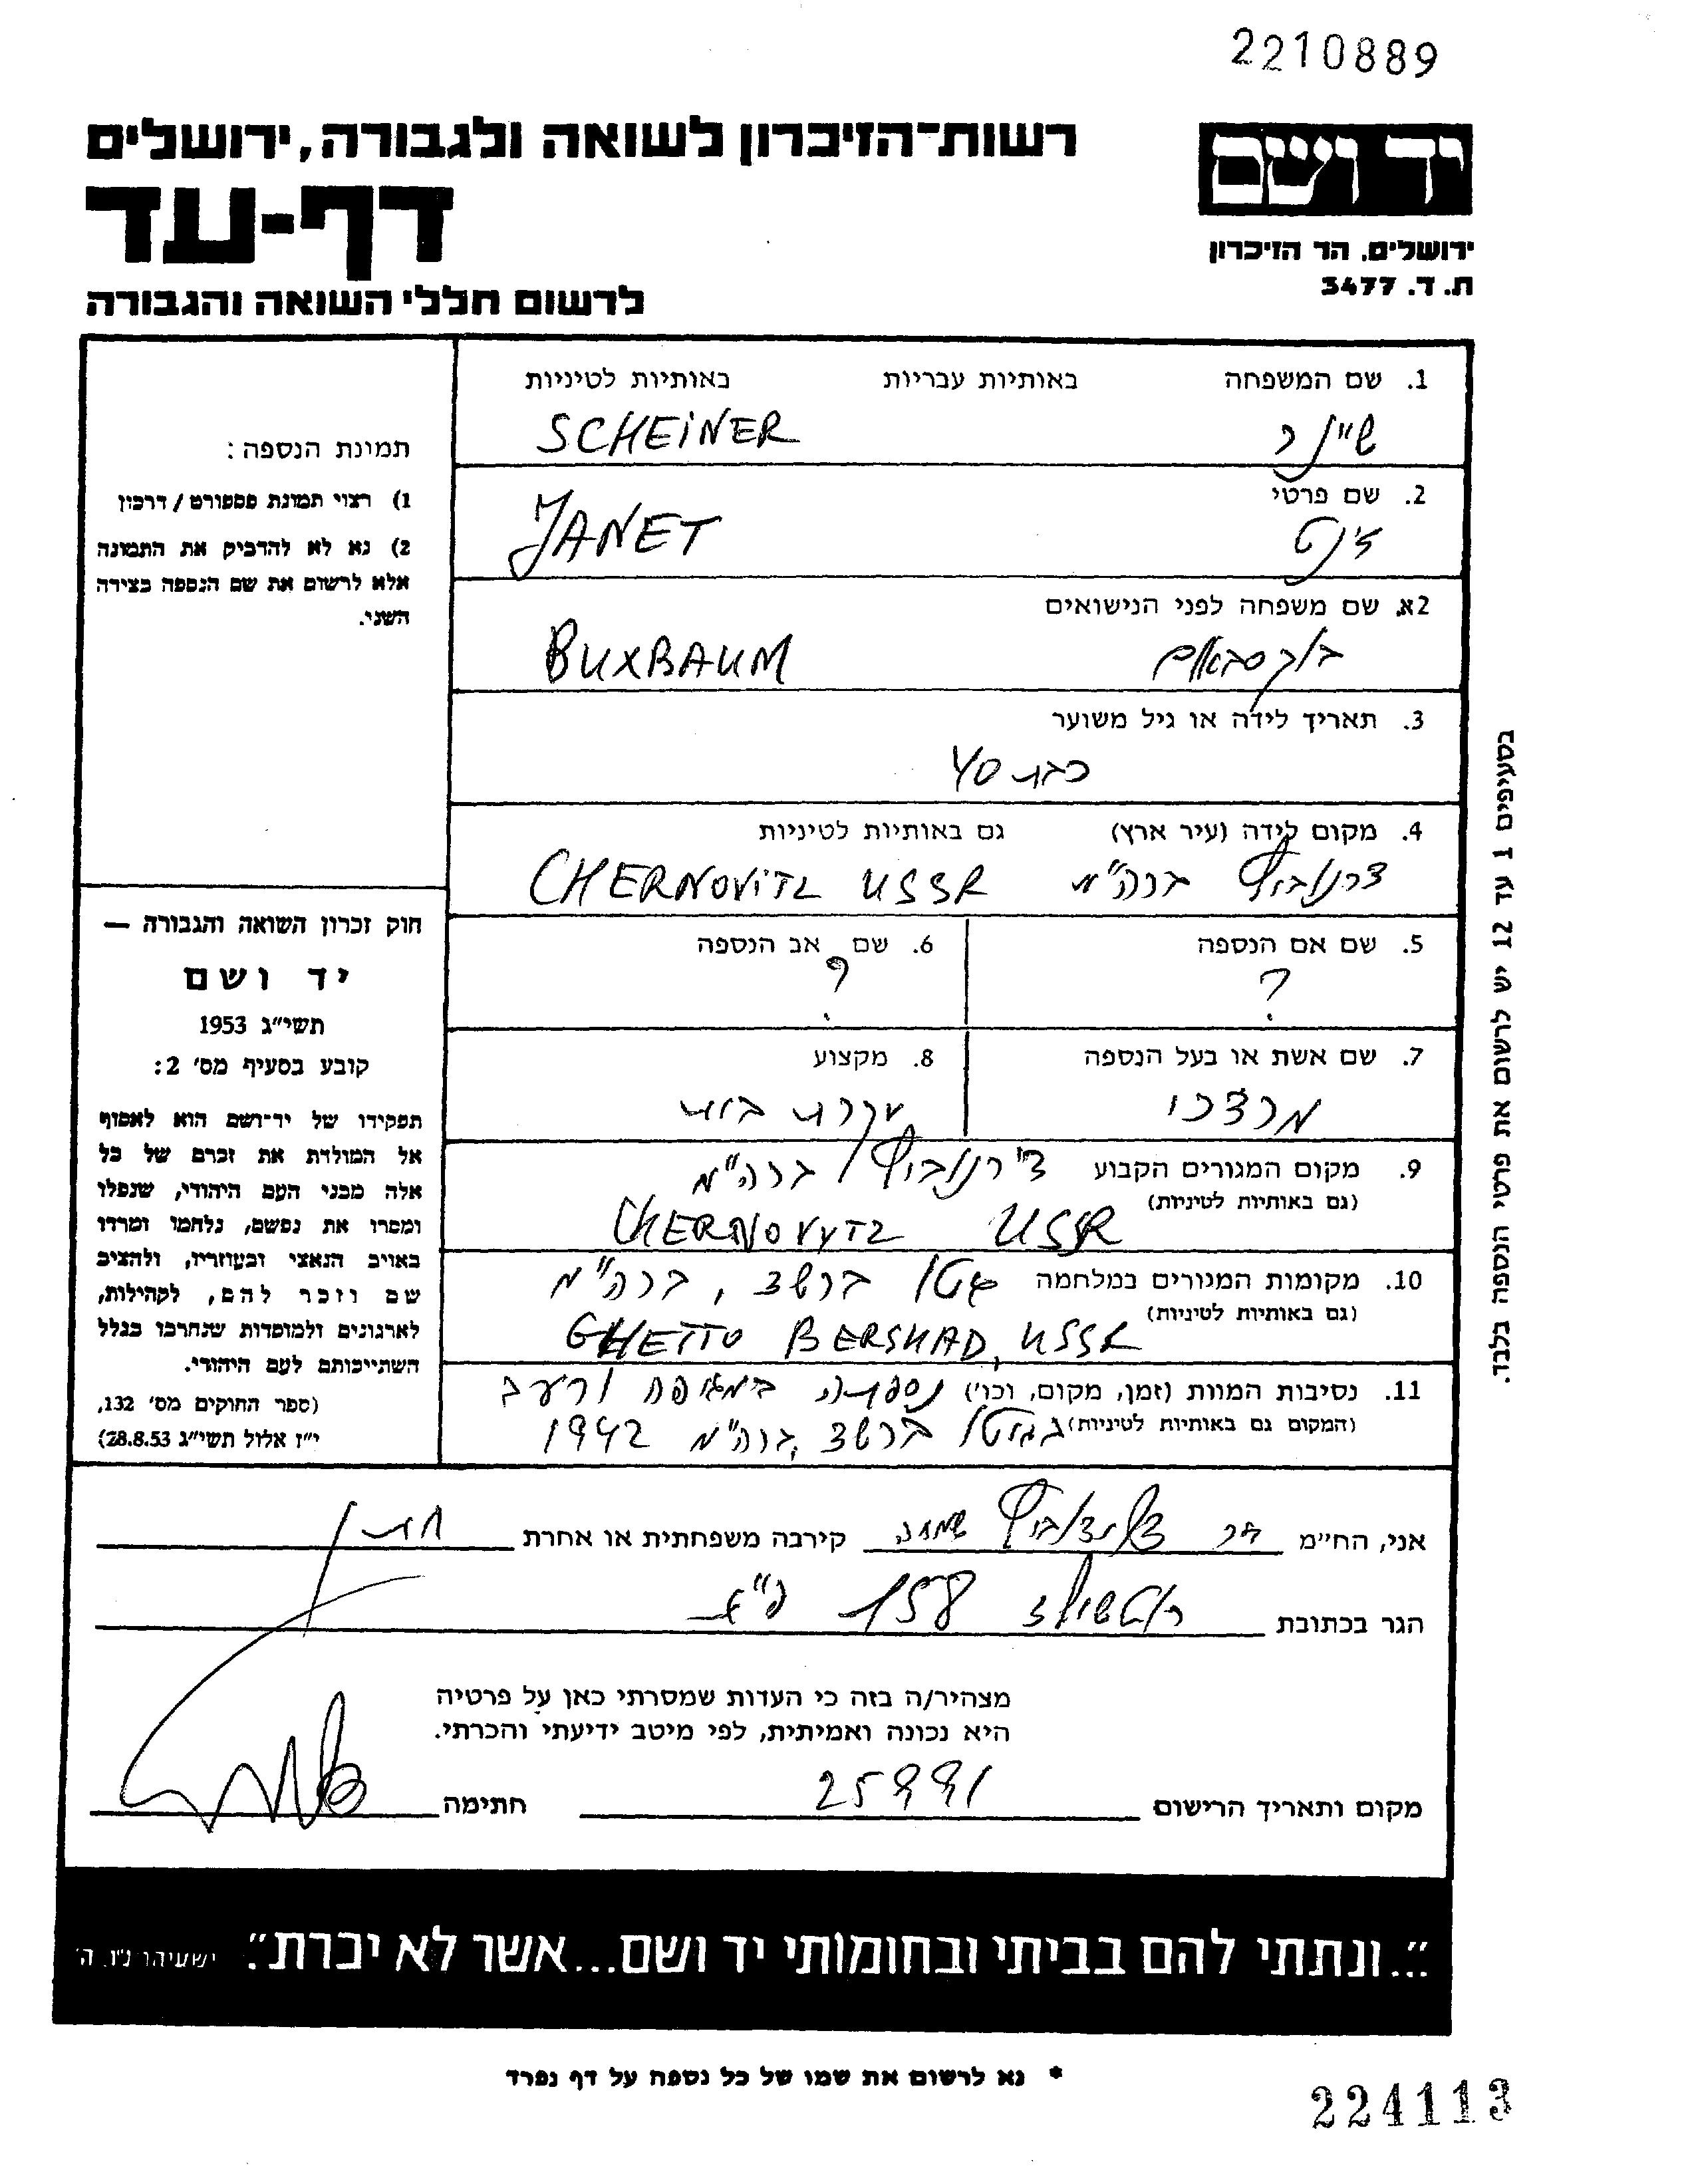 2210889
יד ושם
ירושלים. הר הזיכרון
ת. ד. 3477
רשות-הזיכרון לשואה ולגבורה, ירושלים
דף-עד
לרשום חללי השואה והגבורה
1. שם המשפחה באותיות עבריות באותיות לטיניות
שיינר SCHEINER
2. שם פרטי
ז'נט JANET
2א. שם משפחה לפני הנישואים
בוקסבאום BUXBAUM
3. תאריך לידה או גיל משוער
כבת 40
4. מקום לידה (עיר ארץ) גם באותיות לטיניות
צרנוביץ ברה"מ CHERNOVITZ USSR
5. שם אם הנספה
?
6. שם אב הנספה
?
7. שם אשת או בעל הנספה
מרדכי
8. מקצוע
עקרת בית
9. מקום המגורים הקבוע צ'רנוביץ / ברה"מ
(גם באותיות לטיניות)
CHERNOVYTZ USSR
10. מקומות המגורים במלחמה גטו ברשד, ברה"מ
(גם באותיות לטיניות)
GHETTO BERSHAD, USSR
11. נסיבות המוות (זמן, מקום, וכו') נספתה במגיפה ורעב
(המקום גם באותיות לטיניות) בגטו ברשד, ברה"מ 1942
תמונת הנספה:
1) רצוי תמונת פספורט / דרכון
2) נא לא להדביק את התמונה
אלא לרשום את שם הנספה בצידה
השני.
חוק זכרון השואה והגבורה —
יד ושם
תשי"ג 1953
קובע בסעיף מס' 2:
תפקידו של יד-ושם הוא לאסוף
אל המולדת את זכרם של כל
אלה מבני העם היהודי, שנפלו
ומסרו את נפשם, נלחמו ומרדו
באויב הנאצי ובעוזריו, ולהציב
שם וזכר להם, לקהילות,
לארגונים ולמוסדות שנחרבו בגלל
השתייכותם לעם היהודי.
(ספר החוקים מס' 132,
י"ז אלול תשי"ג 28.8.53)
בסעיפים 1 עד 12 יש לרשום את פרטי הנספה בלבד.
אני, הח"מ דר שמחה קירבה משפחתית או אחרת חתן
הגר בכתובת רוטשילד 158 פ"ת
מצהיר/ה בזה כי העדות שמסרתי כאן על פרטיה
היא נכונה ואמיתית, לפי מיטב ידיעתי והכרתי.
מקום ותאריך הרישום 25991 חתימה
"...ונתתי להם בביתי ובחומותי יד ושם...אשר לא יכרת". ישעיהו נ"ו, ה'
* נא לרשום את שמו של כל נספה על דף נפרד
224113